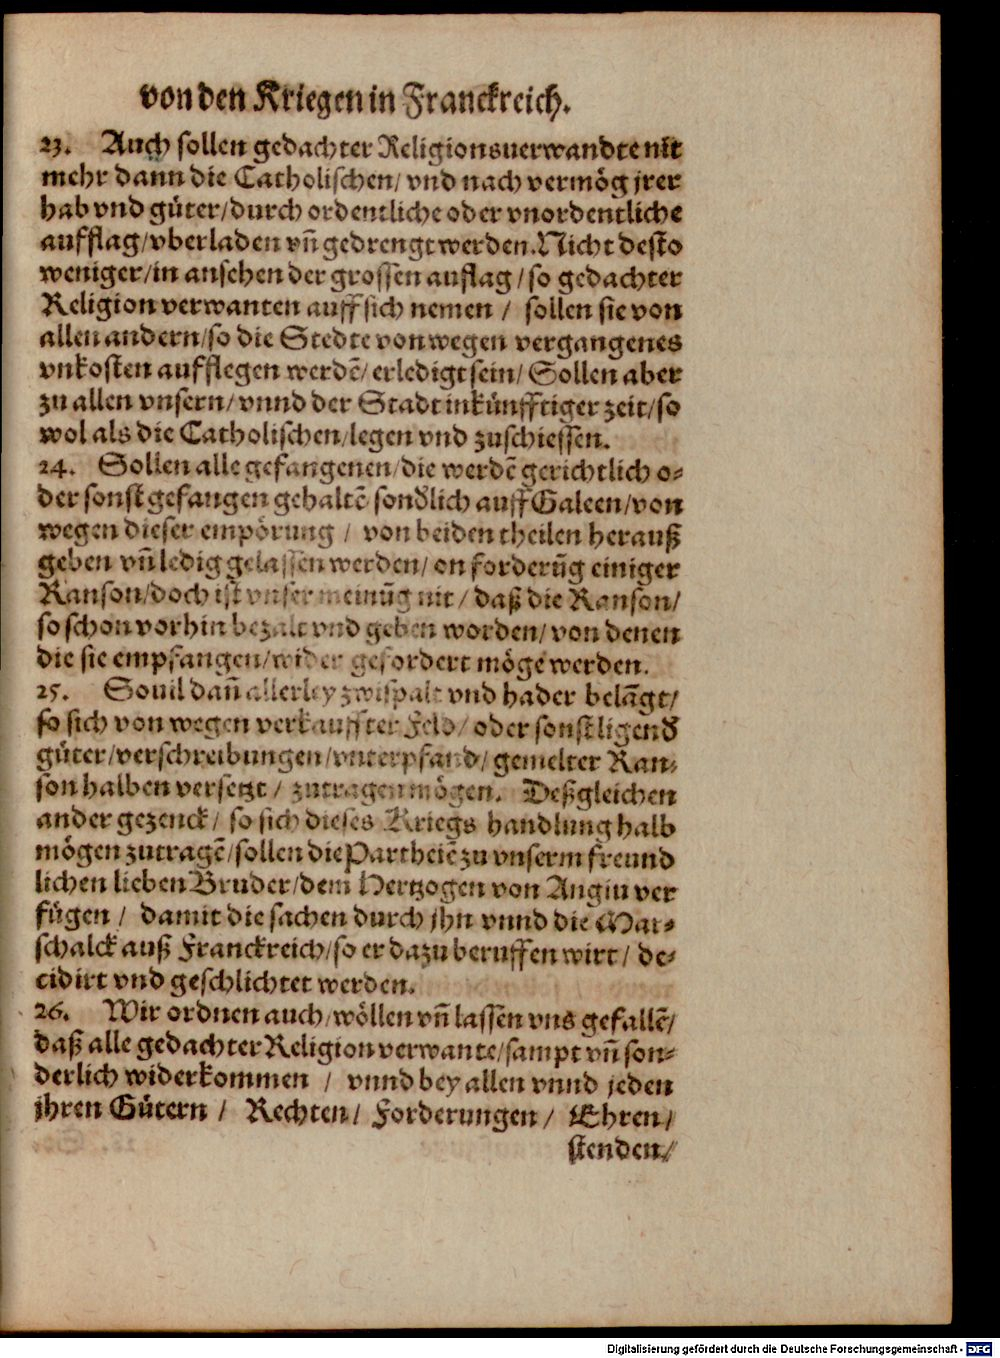 von den Kriegen in Franckreich.
23. Auch sollen gedachter Religionsuerwandte nit
mehr dann die Catholischen/ vnd nach vermög jrer
hab vnd güter/durch ordentliche oder vnordentliche
aufflag/vberladen vñ gedrengt werden. Nicht desto
weniger/in ansehen der grossen auflag/so gedachter
Religion verwanten auff sich nemen / sollen sie von
allen andern/so die Stedte von wegen vergangenes
vnkosten aufflegen werdē/ erledigt sein/ Sollen aber
zu allen vnsern/ vnnd der Stadt inkünfftiger zeit/so
wol als die Catholischen/legen vnd zuschiessen.
24. Sollen alle gefangenen/die werdē gerichtlich o-
der sonst gefangen gehaltē sondlich auff Galeen/von
wegen dieser empörung / von beiden theilen herauß
geben vñ ledig gelassen werden/ on forderūg einiger
Ranson/doch ist vnser meinūg nit/ daß die Ranson/
so schon vorhin bezalt vnd geben worden/ von denen
die sie empfangen/wider gefordert möge werden.
25. Souil dañ allerley zwispalt vnd hader belāgt/
so sich von wegen verkauffter Feld/ oder sonst ligend
güter/verschreibungen/vnterpfand/ gemelter Ran-
son halben versetzt / zutragen mögen. Deßgleichen
ander gezenck/ so sich dieses Kriegs handlung halb
mögen zutragē/sollen die Partheiē zu vnserm freund
lichen lieben Bruder/dem Hertzogen von Angiu ver
fügen / damit die sachen durch jhn vnnd die Mar-
schalck auß Franckreich/so er dazu beruffen wirt/ de-
cidirt vnd geschlichtet werden.
26. Wir ordnen auch/wöllen vñ lassen vns gefallē/
daß alle gedachter Religion verwante/sampt vñ son-
derlich widerkommen / vnnd bey allen vnnd jeden
jhren Gütern / Rechten/ Forderungen / Ehren/
stenden/
Digitalisierung gefördert durch die Deutsche Forschungsgemeinschaft - DFG